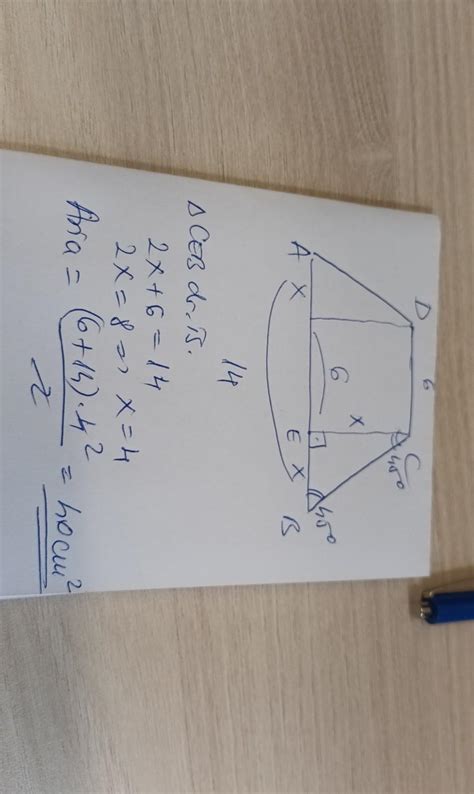 D 6 C
45°
x
6
A x E x B
45°
14
△CEB dr. is.
2x+6=14
2x=8 => x=4
Aria = (6+14)·4² / 2 = 40cm²